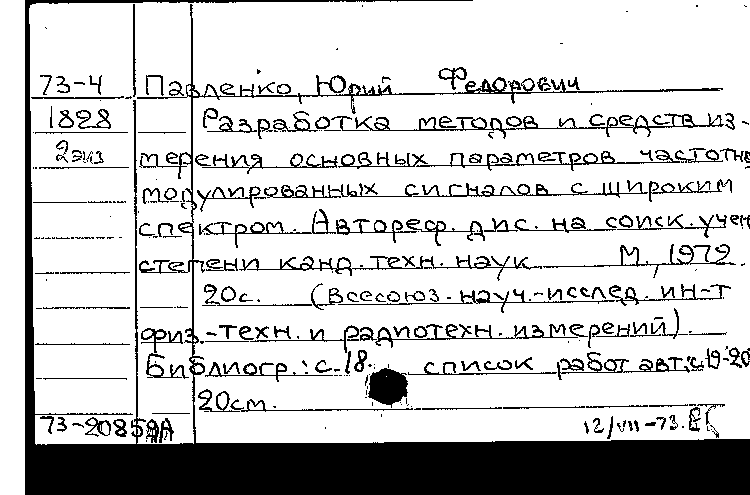 73-4 Павленко, Юрий Федорович
1828 Разработка методов и средств из-
2 экз мерения основных параметров частотно
модулированных сигналов с широким
спектром. Автореф. дис. на соиск. учен
степени канд. техн. наук М., 1972
20с. (Всесоюз. науч.-исслед. ин-т
физ.-техн. и радиотехн. измерений).
Библиогр.: с. 18. список работ авт.: с 19-20
20см.
73-20859А 12/VII-73.